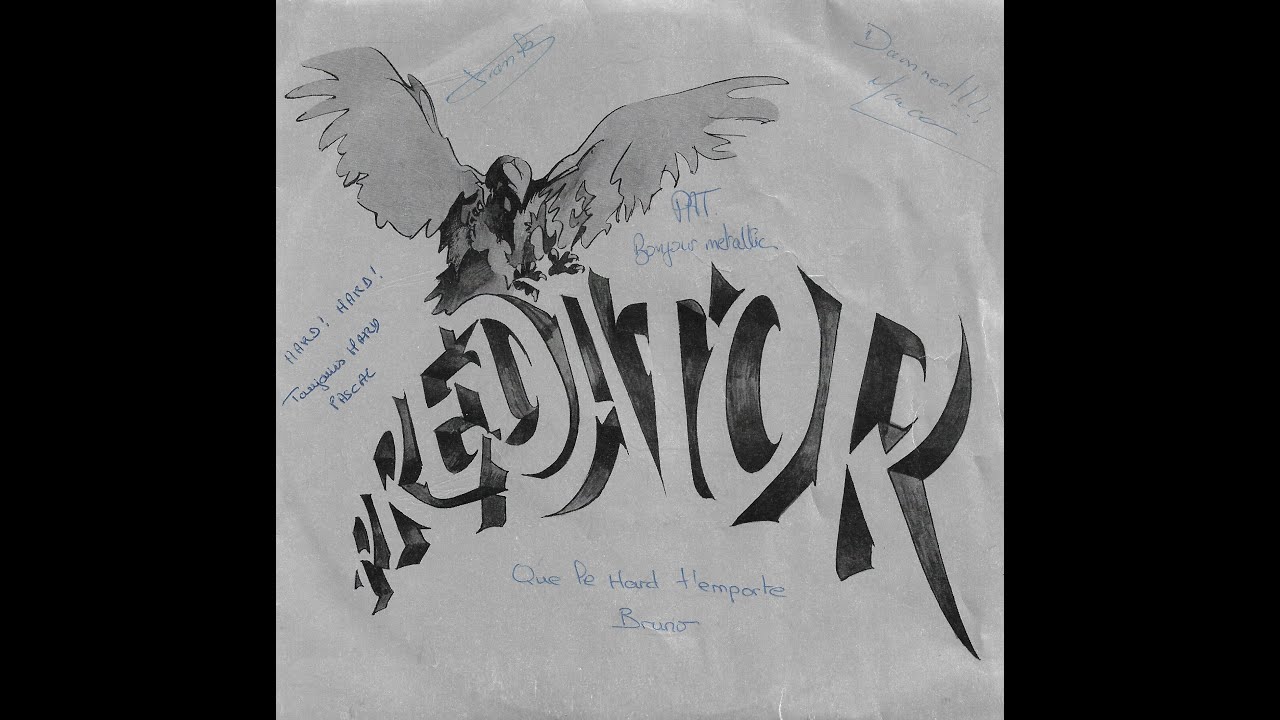 Damned!!!!
PAT
Bonjour metallic
HARD! HARD!
Toujours HARD
PASCAL
PREDATOR
Que le Hard t'emporte
Bruno